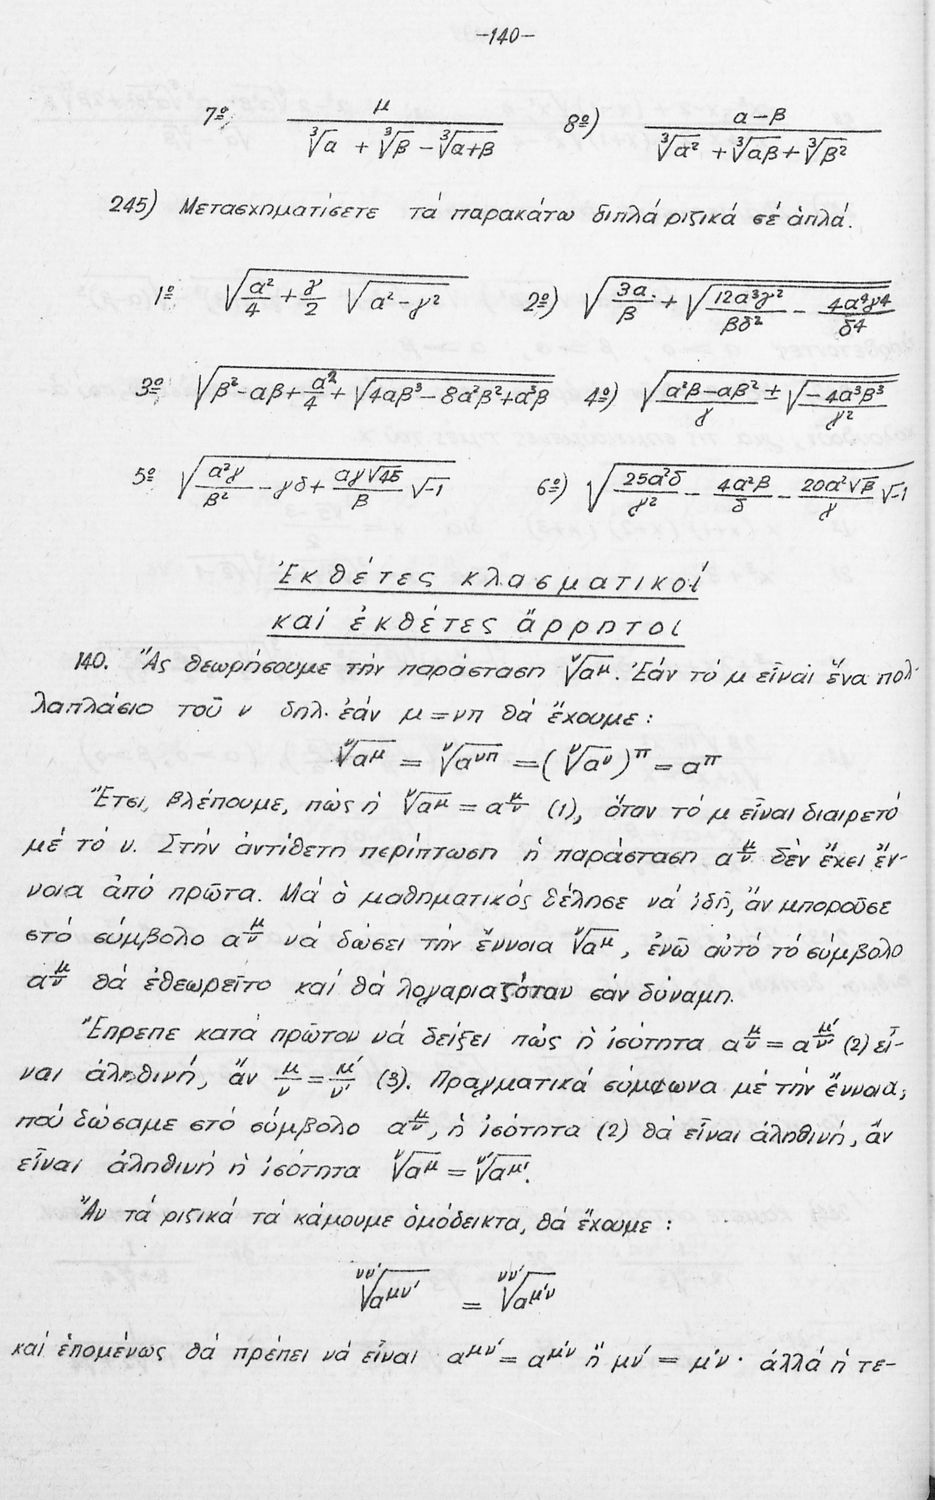 -140-
7º) μ / (∛α + ∛β - ∛(α+β))   8º) (α-β) / (∛α² + ∛(αβ) + ∛β²)
245) Μετασχηματίσετε τά παρακάτω διπλά ριζικά σέ ἁπλά.
1º √(α²/4 + γ/2 √(α²-γ²))   2º) √(3α/β + √(12α³γ²/βδ² - 4α⁴γ⁴/δ⁴))
3º √(β²-αβ+α²/4+√(4αβ³-8α²β²+α³β))   4º) √((α²β-αβ²)/γ ± √(-4α³β³/γ²))
5º √(α²γ/β² - γδ + αγ√45/β √-1)   6º) √(25α²δ/γ² - 4α²β/δ - 20α²√β/γ √-1)
Ἐκθέτες κλασματικοί
καί ἐκθέτες ἄρρητοι
140. Ἄς θεωρήσουμε τήν παράσταση ᵛ√αᵘ. Ἐάν τό μ εἶναι ἕνα πολ-
λαπλάσιο τοῦ ν δηλ. ἐάν μ=νπ θά ἔχουμε:
ᵛ√α^μ = ᵛ√α^νπ = (ᵛ√α^ν)^π = α^π
Ἔτσι, βλέπουμε, πώς ἡ ᵛ√α^μ = α^(μ/ν) (1), ὅταν τό μ εἶναι διαιρετό
μέ τό ν. Στήν ἀντίθετη περίπτωση ἡ παράσταση α^(μ/ν) δέν ἔχει ἔν-
νοια ἀπό πρῶτα. Μά ὁ μαθηματικός θέλησε νά ἰδῆ, ἄν μποροῦσε
στό σύμβολο α^(μ/ν) νά δώσει τήν ἔννοια ᵛ√α^μ, ἐνῶ αὐτό τό σύμβολο
α^(μ/ν) θά ἐθεωρεῖτο καί θά λογαριαζόταν σάν δύναμη.
Ἔπρεπε κατά πρῶτον νά δείξει πώς ἡ ἰσότητα α^(μ/ν) = α^(μ′/ν′) (2) εἶ-
ναι ἀληθινή, ἄν μ/ν = μ′/ν′ (3). Πραγματικά σύμφωνα μέ τήν ἔννοια,
πού δώσαμε στό σύμβολο α^(μ/ν), ἡ ἰσότητα (2) θά εἶναι ἀληθινή, ἄν
εἶναι ἀληθινή ἡ ἰσότητα ᵛ√α^μ = ᵛ′√α^μ′.
Ἄν τά ριζικά τά κάμουμε ὁμόδεικτα, θά ἔχουμε :
ᵛᵛ′√α^μν′ = ᵛᵛ′√α^μ′ν
καί ἑπομένως θά πρέπει νά εἶναι α^μν′ = α^μ′ν ἤ μν′ = μ′ν · ἀλλά ἡ τε-